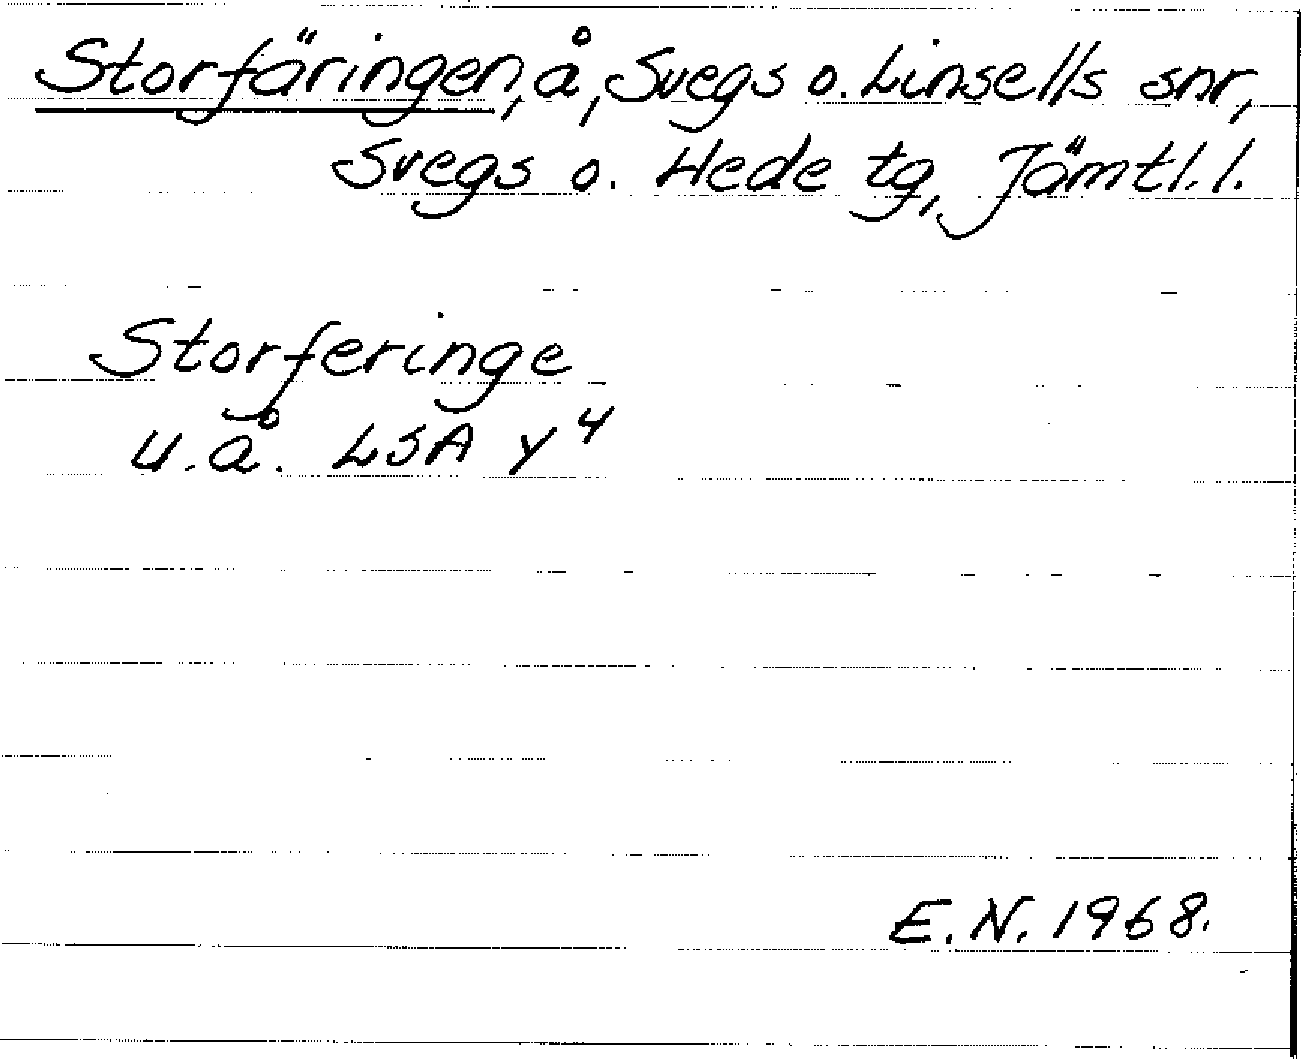 Storfäringen, å, Svegs o. Linsells snr,
Svegs o. Hede tg, Jämtl. l.
Storferinge
u.å. LSA Y 4
E. N. 1968.